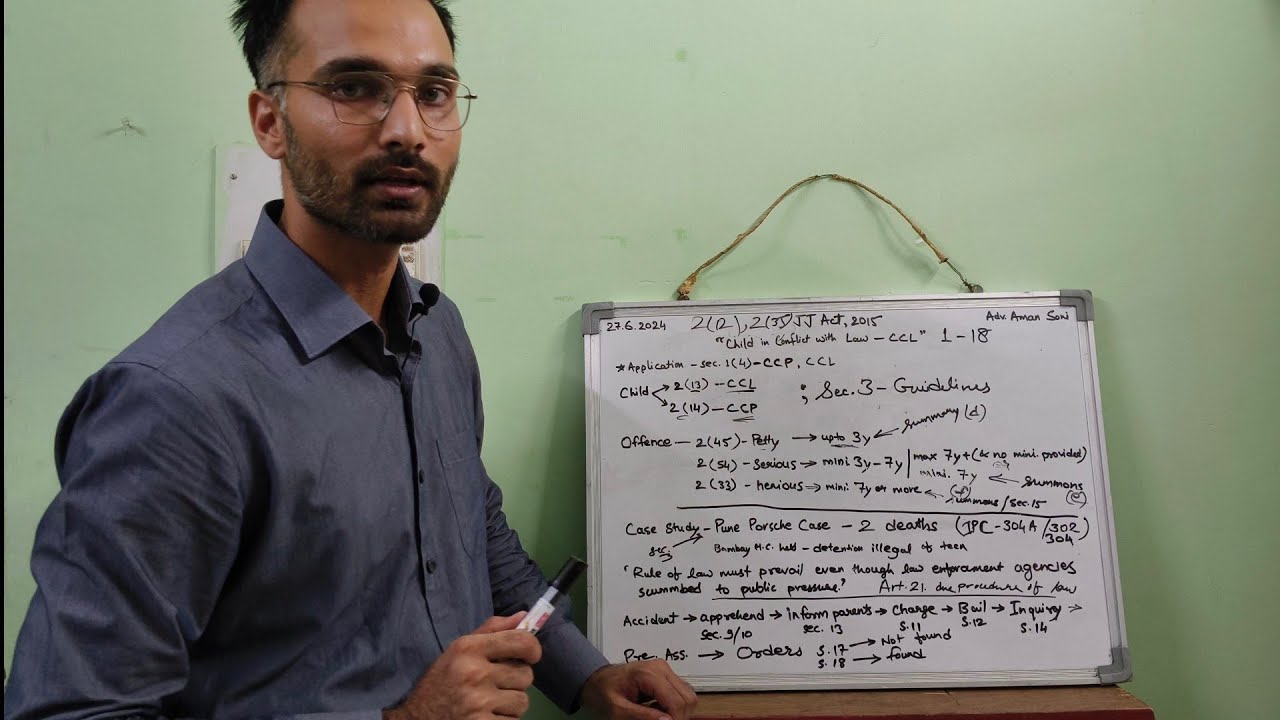 27.6.2024 2(12), 2(35) JJ Act, 2015 Adv. Aman Soni
"Child in Conflict with Law - CCL" 1-18
*Application - sec. 1(4) - CCP, CCL
Child 2(13) - CCL ; Sec. 3 - Guidelines
2(14) - CCP
Offence - 2(45) - Petty → upto 3y ← summary (d)
2(54) - Serious → mini 3y - 7y | max 7y + (& no mini. provided)
mini. 7y ← Summons (e)
2(33) - henious → mini. 7y or more ← Summons/sec.15
Case Study - Pune Porsche Case - 2 deaths (IPC - 304A/302
304)
Bombay H.C. held - detention illegal of teen
"Rule of law must prevail even though law enforcement agencies
scummbed to public pressure." Art. 21. due procedure of law
Accident → apprehend → inform parents → Charge → Bail → Inquiry →
sec. 9/10 sec. 13 S.11 S.12 S.14
Pre. Ass. → Orders S.17 → Not found
S.18 → found